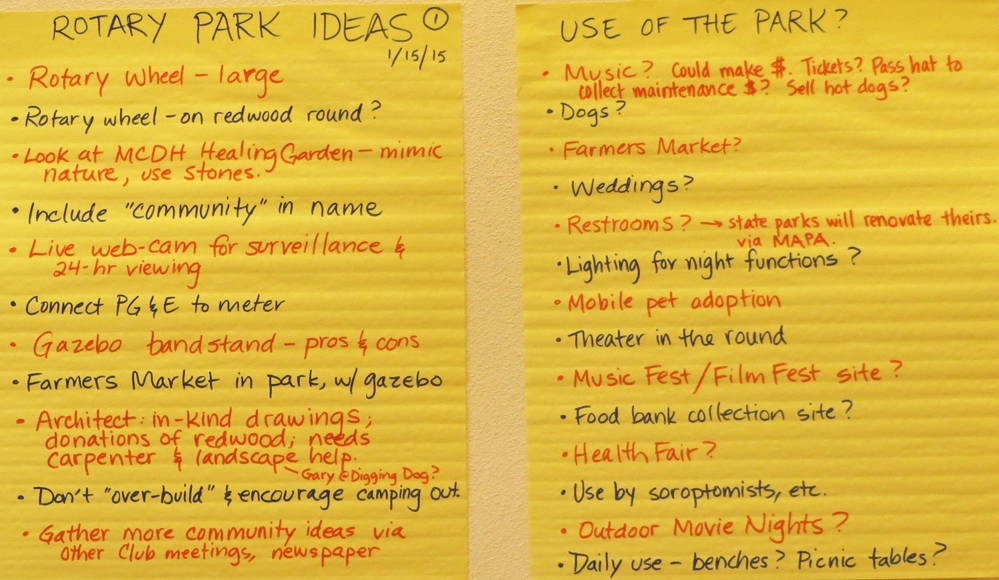 ROTARY PARK IDEAS ①
1/15/15
• Rotary wheel – large
• Rotary wheel – on redwood round?
• Look at MCDH Healing Garden – mimic
nature, use stones.
• Include "community" in name
• Live web-cam for surveillance &
24-hr viewing
• Connect PG & E to meter
• Gazebo bandstand – pros & cons
• Farmers Market in park, w/ gazebo
• Architect: in-kind drawings;
donations of redwood; needs
carpenter & landscape help.
Gary @ Digging Dog?
• Don't "over-build" & encourage camping out.
• Gather more community ideas via
other Club meetings, newspaper
USE OF THE PARK?
• Music? Could make $. Tickets? Pass hat to
collect maintenance $? Sell hot dogs?
• Dogs?
• Farmers Market?
• Weddings?
• Restrooms? → state parks will renovate theirs.
via MAPA.
• Lighting for night functions?
• Mobile pet adoption
• Theater in the round
• Music Fest/Film Fest site?
• Food bank collection site?
• Health Fair?
• Use by soroptomists, etc.
• Outdoor Movie Nights?
• Daily use – benches? Picnic tables?